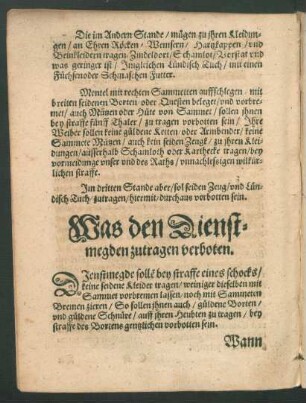 Die im Andern Stande / mügen zu jhren Kleidun-
gen / an Ehren Röcken / Wemsern / Hartzkappen / vnd
Beinkleidern tragen / Zindeldort / Schamlot / Vorstat vnd
was geringer ist / Jmgleichen Lündisch Tuch / mit einen
Füchsen oder Schmaschen Futter.
Mentel mit rechten Sammeten auffschlegen / mit
breiten seidenen Borten oder Questen belegt / vnd vorbre-
met / auch Mützen oder Hüte von Sammet / sollen jhnen
bey straffe fünff Thaler / zu tragen vorbotten sein / Jhre
Weiber sollen keine güldene Keten oder Armbender / keine
Sammete Mützen / auch kein seiden Zeugk / zu jhren Klei-
dungen / ausserhalb Schamlott oder Karthecke tragen / bey
vormeidunge vnser vnd des Raths / vnnachlessigen wilkür-
lichen straffe.
Im dritten Stande aber / sol seiden Zeug / vnd Lün-
disch Tuch / zutragen / hiermit / durchaus vorbotten sein.
Was den Dienst-
megden zutragen verboten.
DJenstmegde solle bey straffe eines schocks /
keine seidene Kleider tragen / weiniger dieselben mit
Sammet vorbremen lassen / noch mit Sammeten
Bremen zieren / So sollen jhnen auch / güldene Borten /
vnd güldene Schnüre / auff jhren Heubten zu tragen / bey
straffe des Bortens gentzlichen vorbotten sein.
Wann